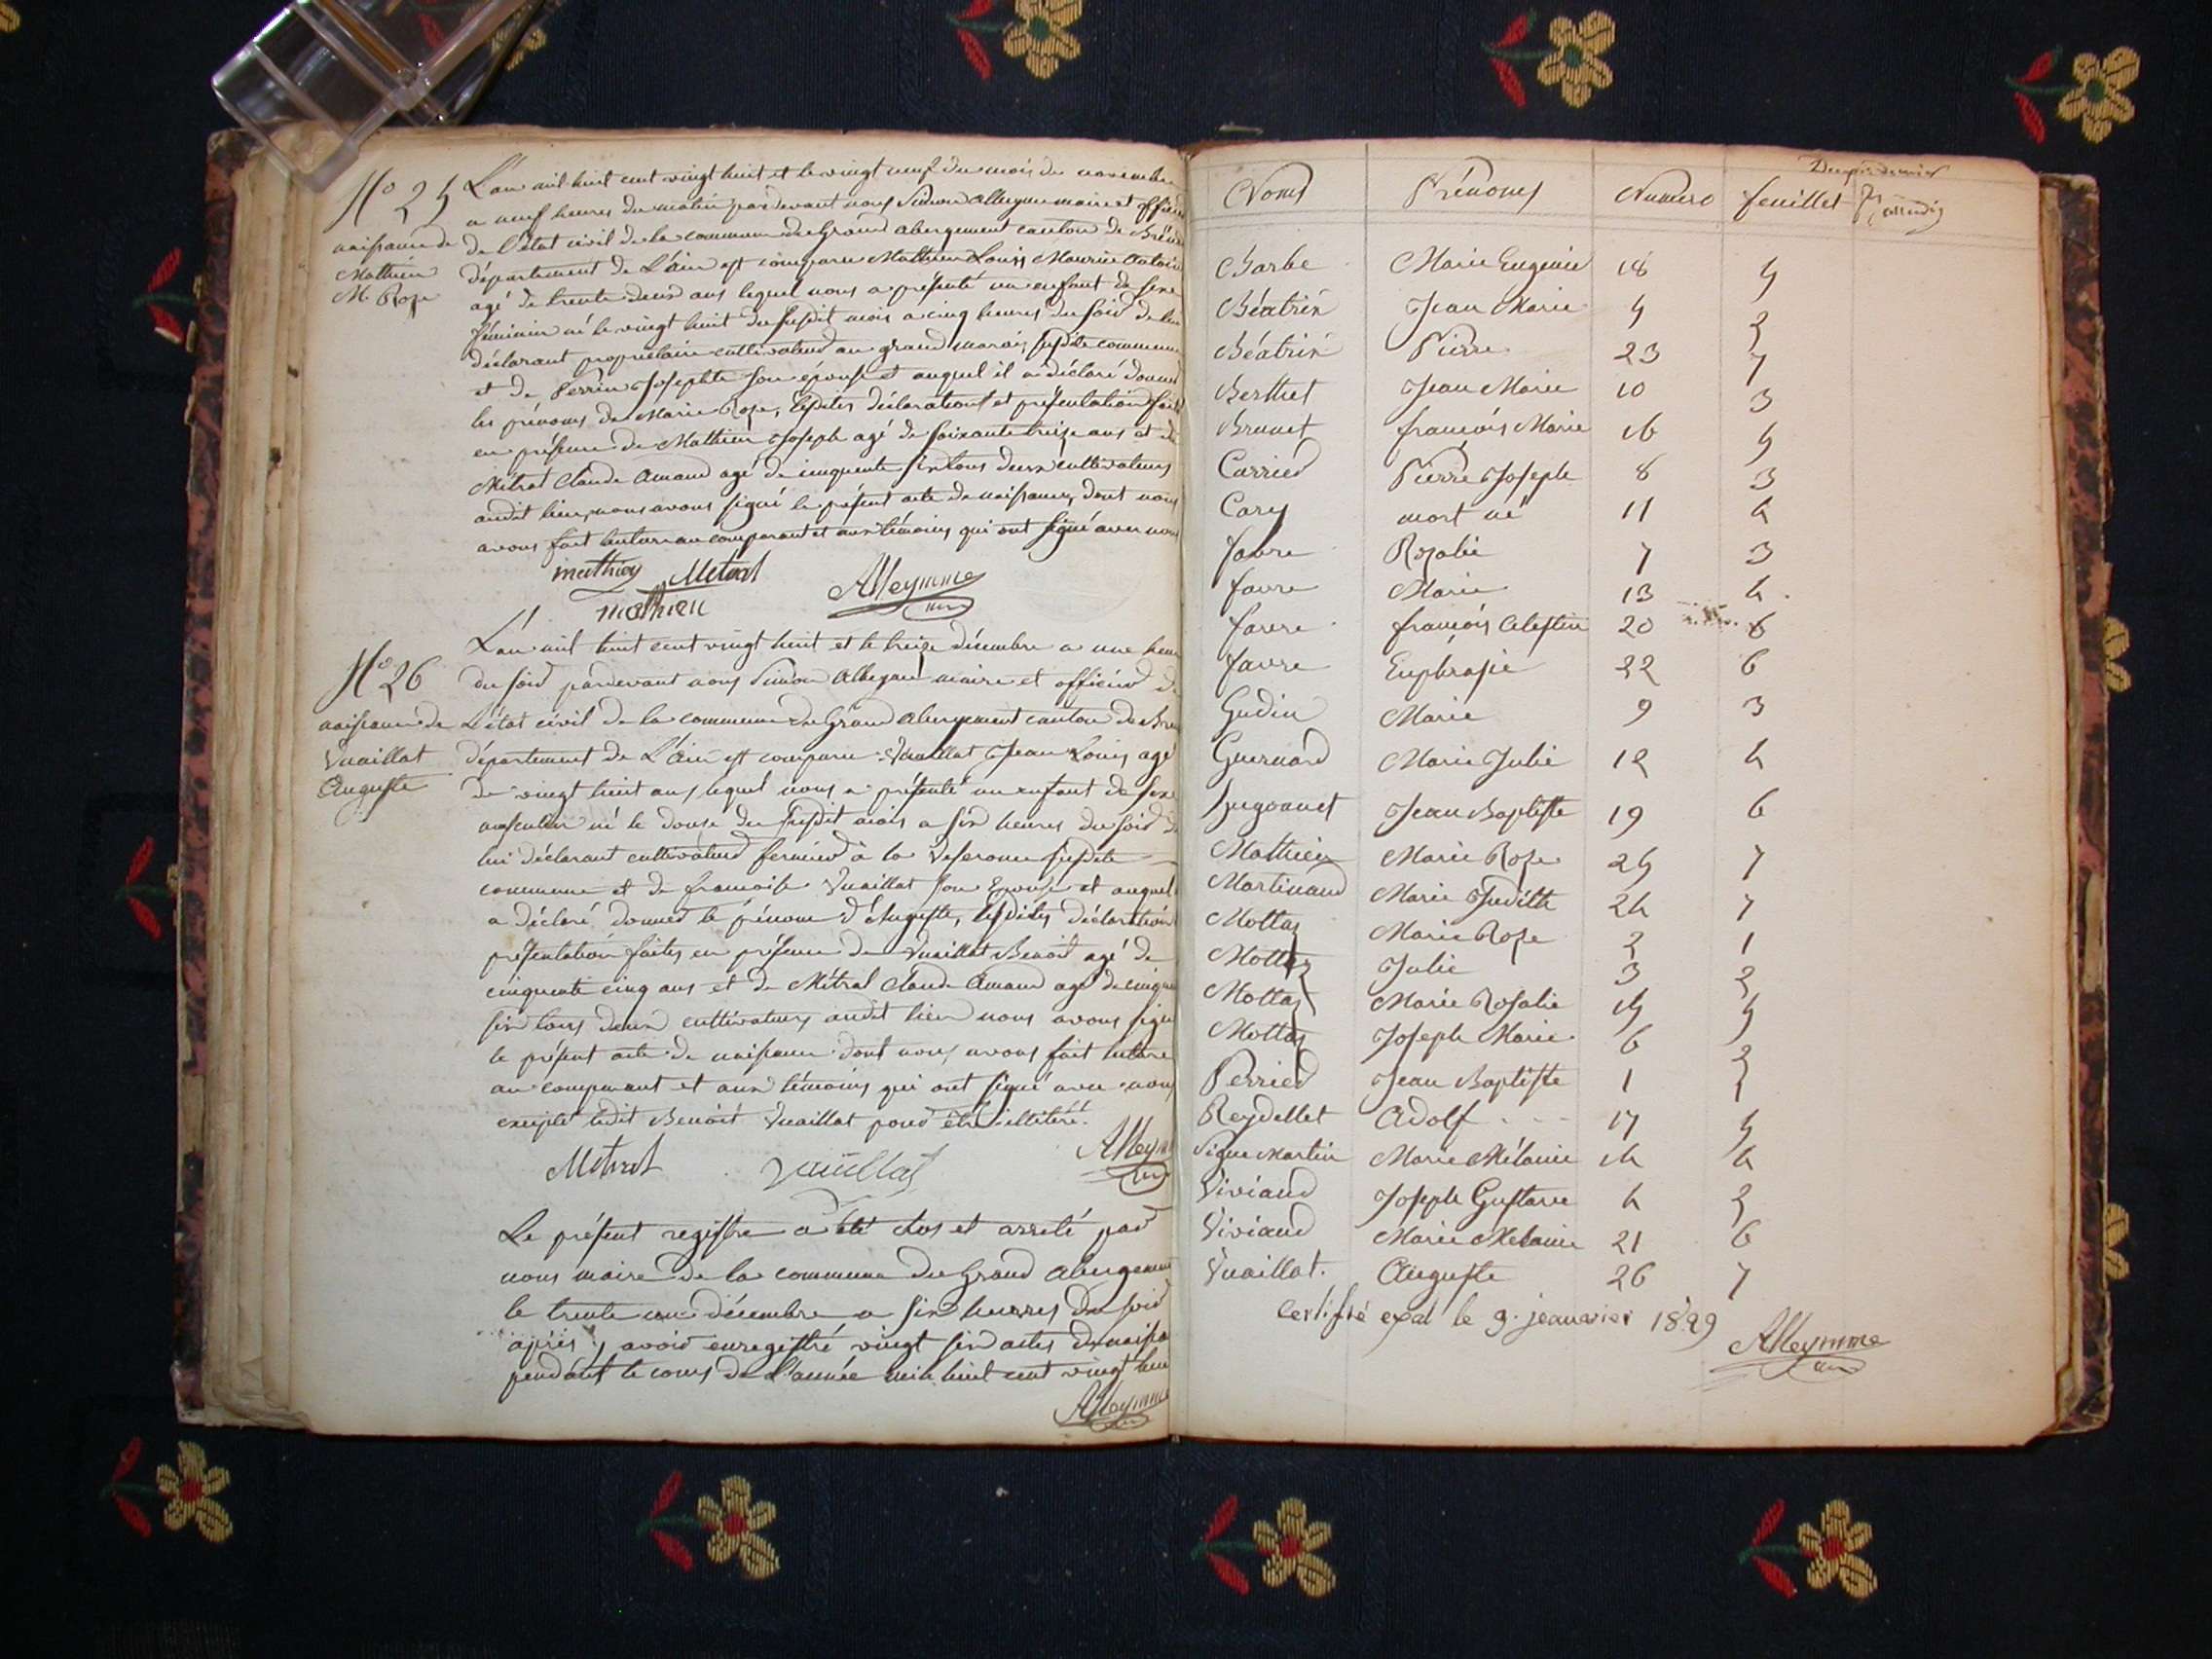 No 25
naissance de
Mathieu
M. Rose
L'an mil huit cent vingt huit et le vingt neuf du mois de novembre
a neuf heures du matin pardevant nous Simon Alleyme maire et officier
de l'état civil de la commune du Grand abergement canton de Brénod
département de L'ain est comparu Mathieu Louis Maurice Antoine
agé de trente deux ans lequel nous a présenté un enfant de sexe
féminin né le vingt huit du susdit mois a cinq heures du soir de lui
déclarant propriétaire cultivateur au grand marais susdite commune
et de Perrin Josephte son épouse et auquel il a déclaré donner
les prénoms de Marie Rose, lesdites déclarations et présentation faites
en présence de Mathieu Joseph agé de soixante treize ans et de
Métral Claude Amand agé de cinquante six tous deux cultivateurs
audit lieu, nous avons signé le présent acte de naissance, dont nous
avons fait lecture au comparant et aux témoins qui ont signé avec nous
mathieu Metral
mathieu Alleymme
No 26
naissance de
Vuaillat
Auguste
L'an mil huit cent vingt huit et le treize décembre a une heure
du soir pardevant nous Simon Alleyme maire et officier de
L'état civil de la commune du Grand abergement canton de Bre
département de L'ain est comparu Vuaillat Jean Louis agé
de vingt huit ans lequel nous a présenté un enfant de sexe
masculin né le douse du susdit mois a six heures du soir de
lui déclarant cultivateur fermier à la susdite
commune et de francoise Vuaillat son Epouse et auquel
a déclaré donner le prénom d'Auguste, lesdites déclaration
présentation faites en présence de Vuaillat Benoit agé de
cinquante cinq ans et de Métral Claude Amand agé de cinqu
six tous deux cultivateurs audit lieu nous avons signé
le présent acte de naissance dont nous avons fait lecture
au comparant et aux témoins qui ont signé avec nous
excepté ledit Benoit Vuaillat pour être illitéré.
Metral Vuaillat Alleym
Le présent registre a été clos et arreté par
nous maire de la commune du Grand abergement
le trente un décembre a six heures du soir
après y avoir enregistré vingt six actes de naissa
pendant le cours de L'année mil huit cent vingt hui
Alleymme
Noms Prénoms Numéro feuillet
Barbe Marie Eugenie 18 5
Béatrix Jean Marie 5 2
Béatrix Pierre 23 7
Berthet Jean Marie 10 3
Brunet françois Marie 16 5
Carrier Pierre Joseph 8 3
Cary mort né 11 4
favre Rosalie 7 3
favre Marie 13 4
favre françois Celestin 20 6
favre Euphrasie 22 6
Gudin Marie 9 3
Guernard Marie Julie 12 4
hugonnet Jean Baptiste 19 6
Mathieu Marie Rose 25 7
Martinand Marie Judith 24 7
Mottaz Marie Rose 2 1
Mottaz Julie 3 2
Mottaz Marie Rosalie 15 5
Mottaz Joseph Marie 6 2
Perrier Jean Baptiste 1 1
Reydellet Adolf 17 5
Pigue Martin Marie Mélanie 14 4
Viviand Joseph Gustave 4 2
Viviand Marie Melanie 21 6
Vuaillat. Auguste 26 7
Certifié exat le 9 jeanvier 1829
Alleymme